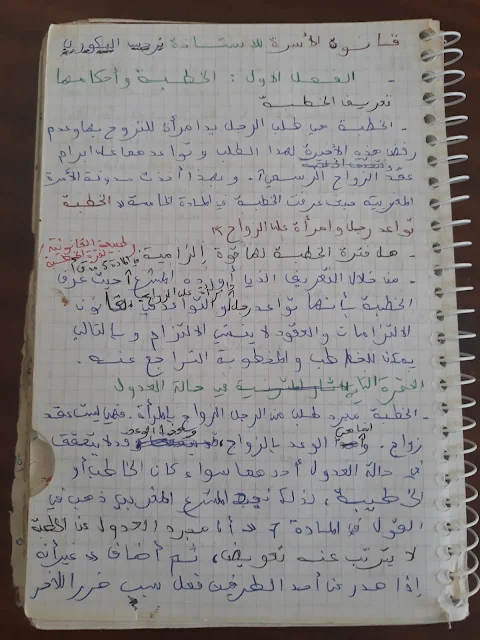 قانون الأسرة للأستاذة زينب البكوري
- الفصل الأول : الخطبة وأحكامها
تعريف الخطبة
- الخطبة هي طلب الرجل يد امرأة للتزوج بها وعدم
رفض هذه الأخيرة لهذا الطلب وتواعدهما على إبرام
عقد الزواج الرسمي. وبهذا أخذت مدونة الأسرة
المغربية حيث عرفت الخطبة في المادة الخامسة " الخطبة
تواعد رجل وامرأة على الزواج "
- هل فترة الخطبة لها قوة إلزامية
الطبيعة القانونية لفترة الخطبة
- من خلال التعريف الذي أورده المشرع حيث عرف
الخطبة بأنها تواعد رجل وامرأة على الزواج والتواعد في قانون
الالتزامات والعقود لا ينشئ الالتزام وبالتالي
يمكن للخاطب والمخطوبة التراجع عنه.
الفقرة الثانية في حالة العدول
- الخطبة مجرد طلب من الرجل الزواج بالمرأة. فهي ليست عقد
زواج. الوعد بالزواج،
في حالة العدول أحدهما سواء كان الخاطب أو
الخطيبة، لذلك نجد المشرع المغربي ذهب في
القول في المادة 7 " أن مجرد العدول عن الخطبة
لا يترتب عنه تعويض، ثم أضاف " غير أنه
إذا صدر عن أحد الطرفين فعل سبب ضررا للآخر